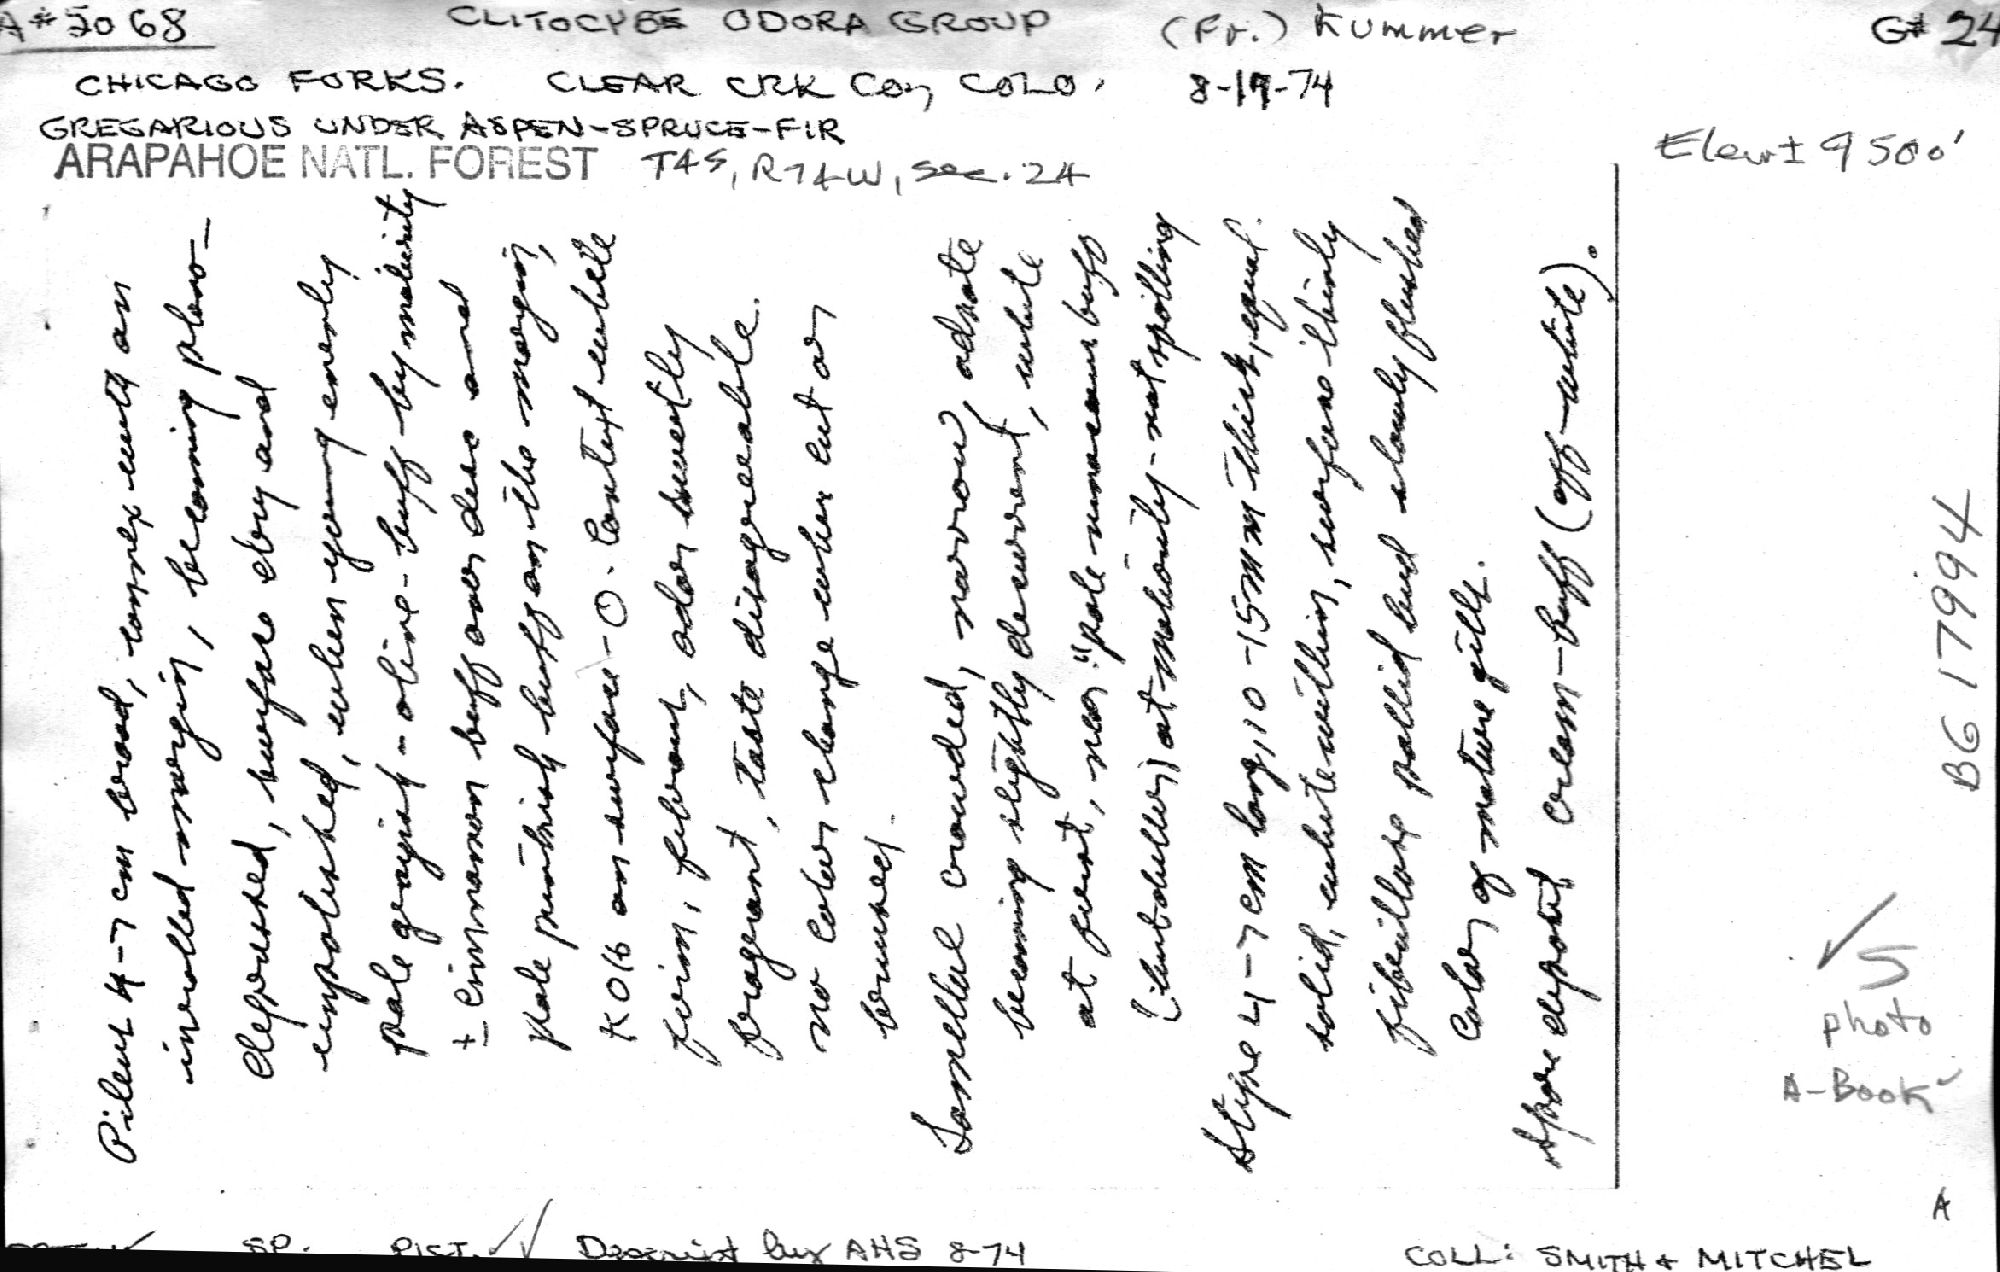 A# 2068 CLITOCYBE ODORA GROUP (Fr.) Kummer G# 24
CHICAGO FORKS. CLEAR CRK Coy COLO. 8-19-74
GREGARIOUS UNDER ASPEN-SPRUCE-FIR
ARAPAHOE NATL. FOREST T4S, R74W, Sec. 24
Elev ± 9500'
Pileus 4-7 cm broad, convex with an
inrolled margin, becoming plano-
depressed, surface dry and
unpolished, when young evenly
pale grayish-olive-buff by maturity
± cinnamon buff over disc and
pale pinkish buff on the margin,
KOH on surface - O. Context white
firm, fibrous, odor sweetly
fragrant, taste disagreeable.
no color change when cut or
bruised.
Lamellae crowded, narrow, adnate
becoming slightly decurrent, white
at first, near "pale
at maturity - not spotting
Stipe 4-7 cm long, 10-15 mm thick, equal.
solid, white within, surface thinly
fibrillose pallid and slowly flushed
color of mature gills.
Spore deposit cream-buff (off-white).
BG 17994
5
photo
A-Book
A
SP. PICT. Descript by AHS 8-74 COLL: SMITH + MITCHEL